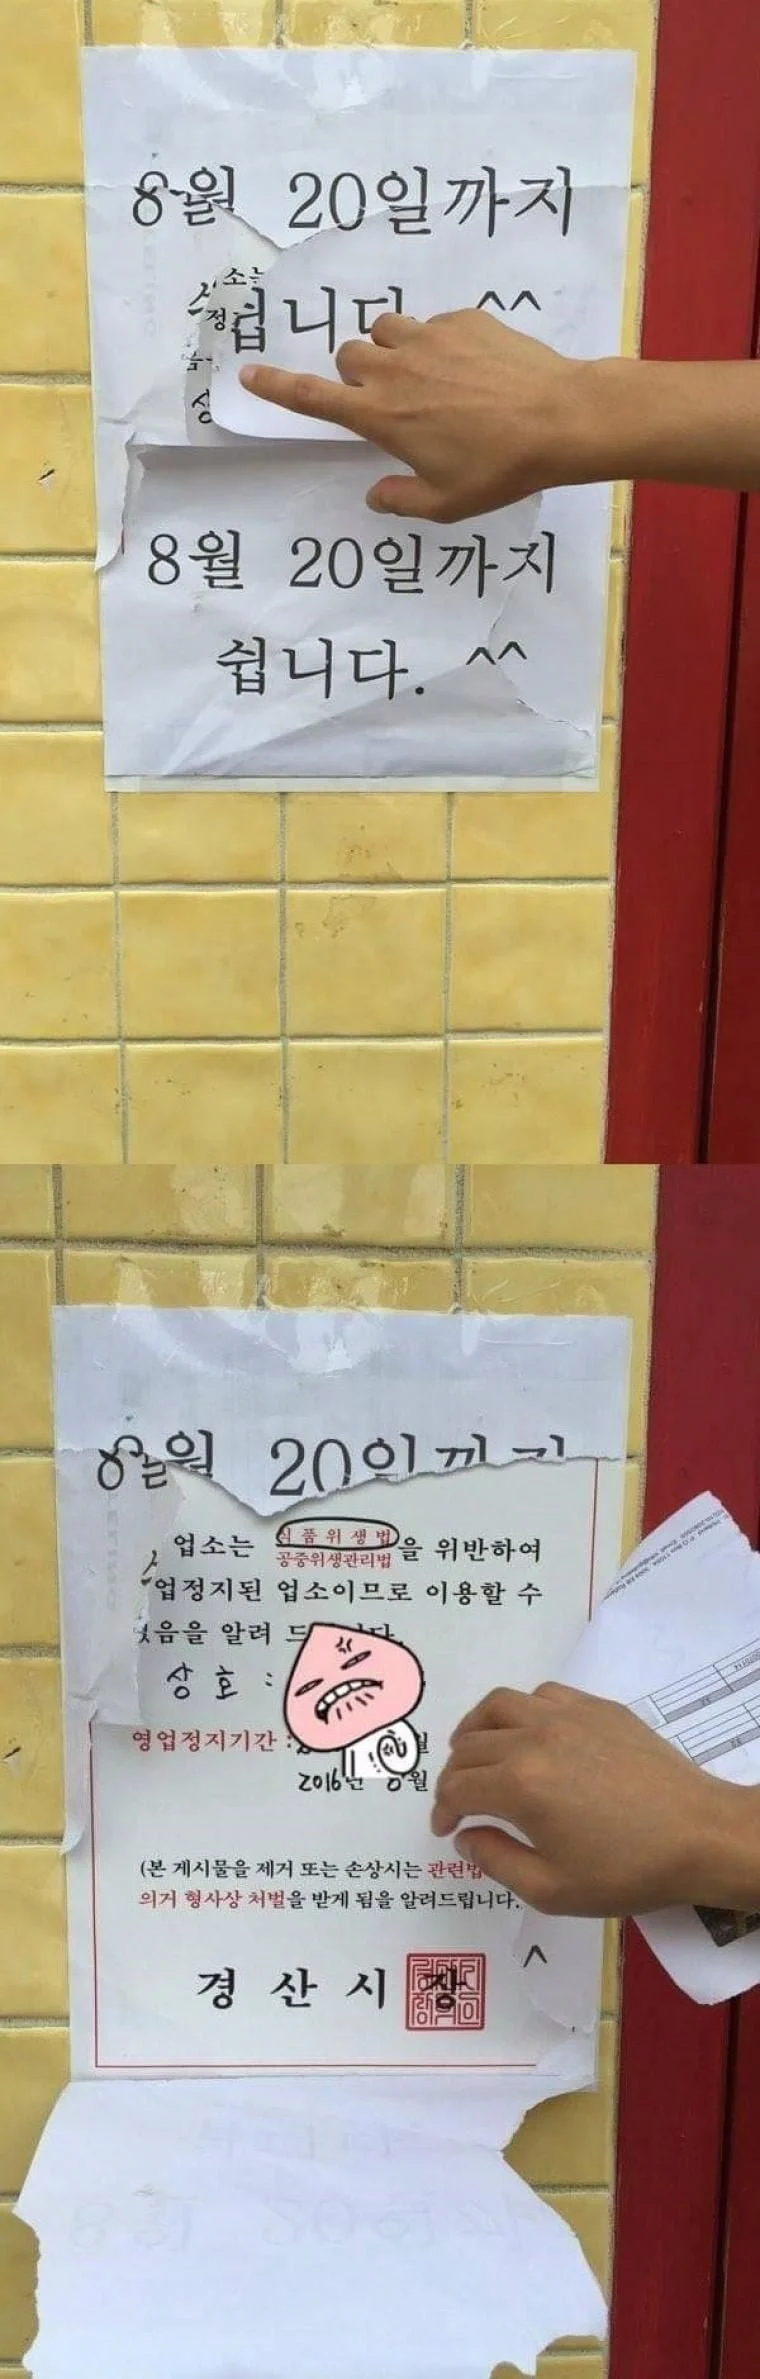 8월 20일까지
업소는
쉽니다. ^^
8월 20일까지
쉽니다. ^^
8월 20일까지
업소는 식품위생법
공중위생관리법 을 위반하여
업정지된 업소이므로 이용할 수
없음을 알려 드
상호 :
영업정지기간 :
2016년 8월
(본 게시물을 제거 또는 손상시는 관련법
의거 형사상 처벌을 받게 됨을 알려드립니다.
^
경산시장